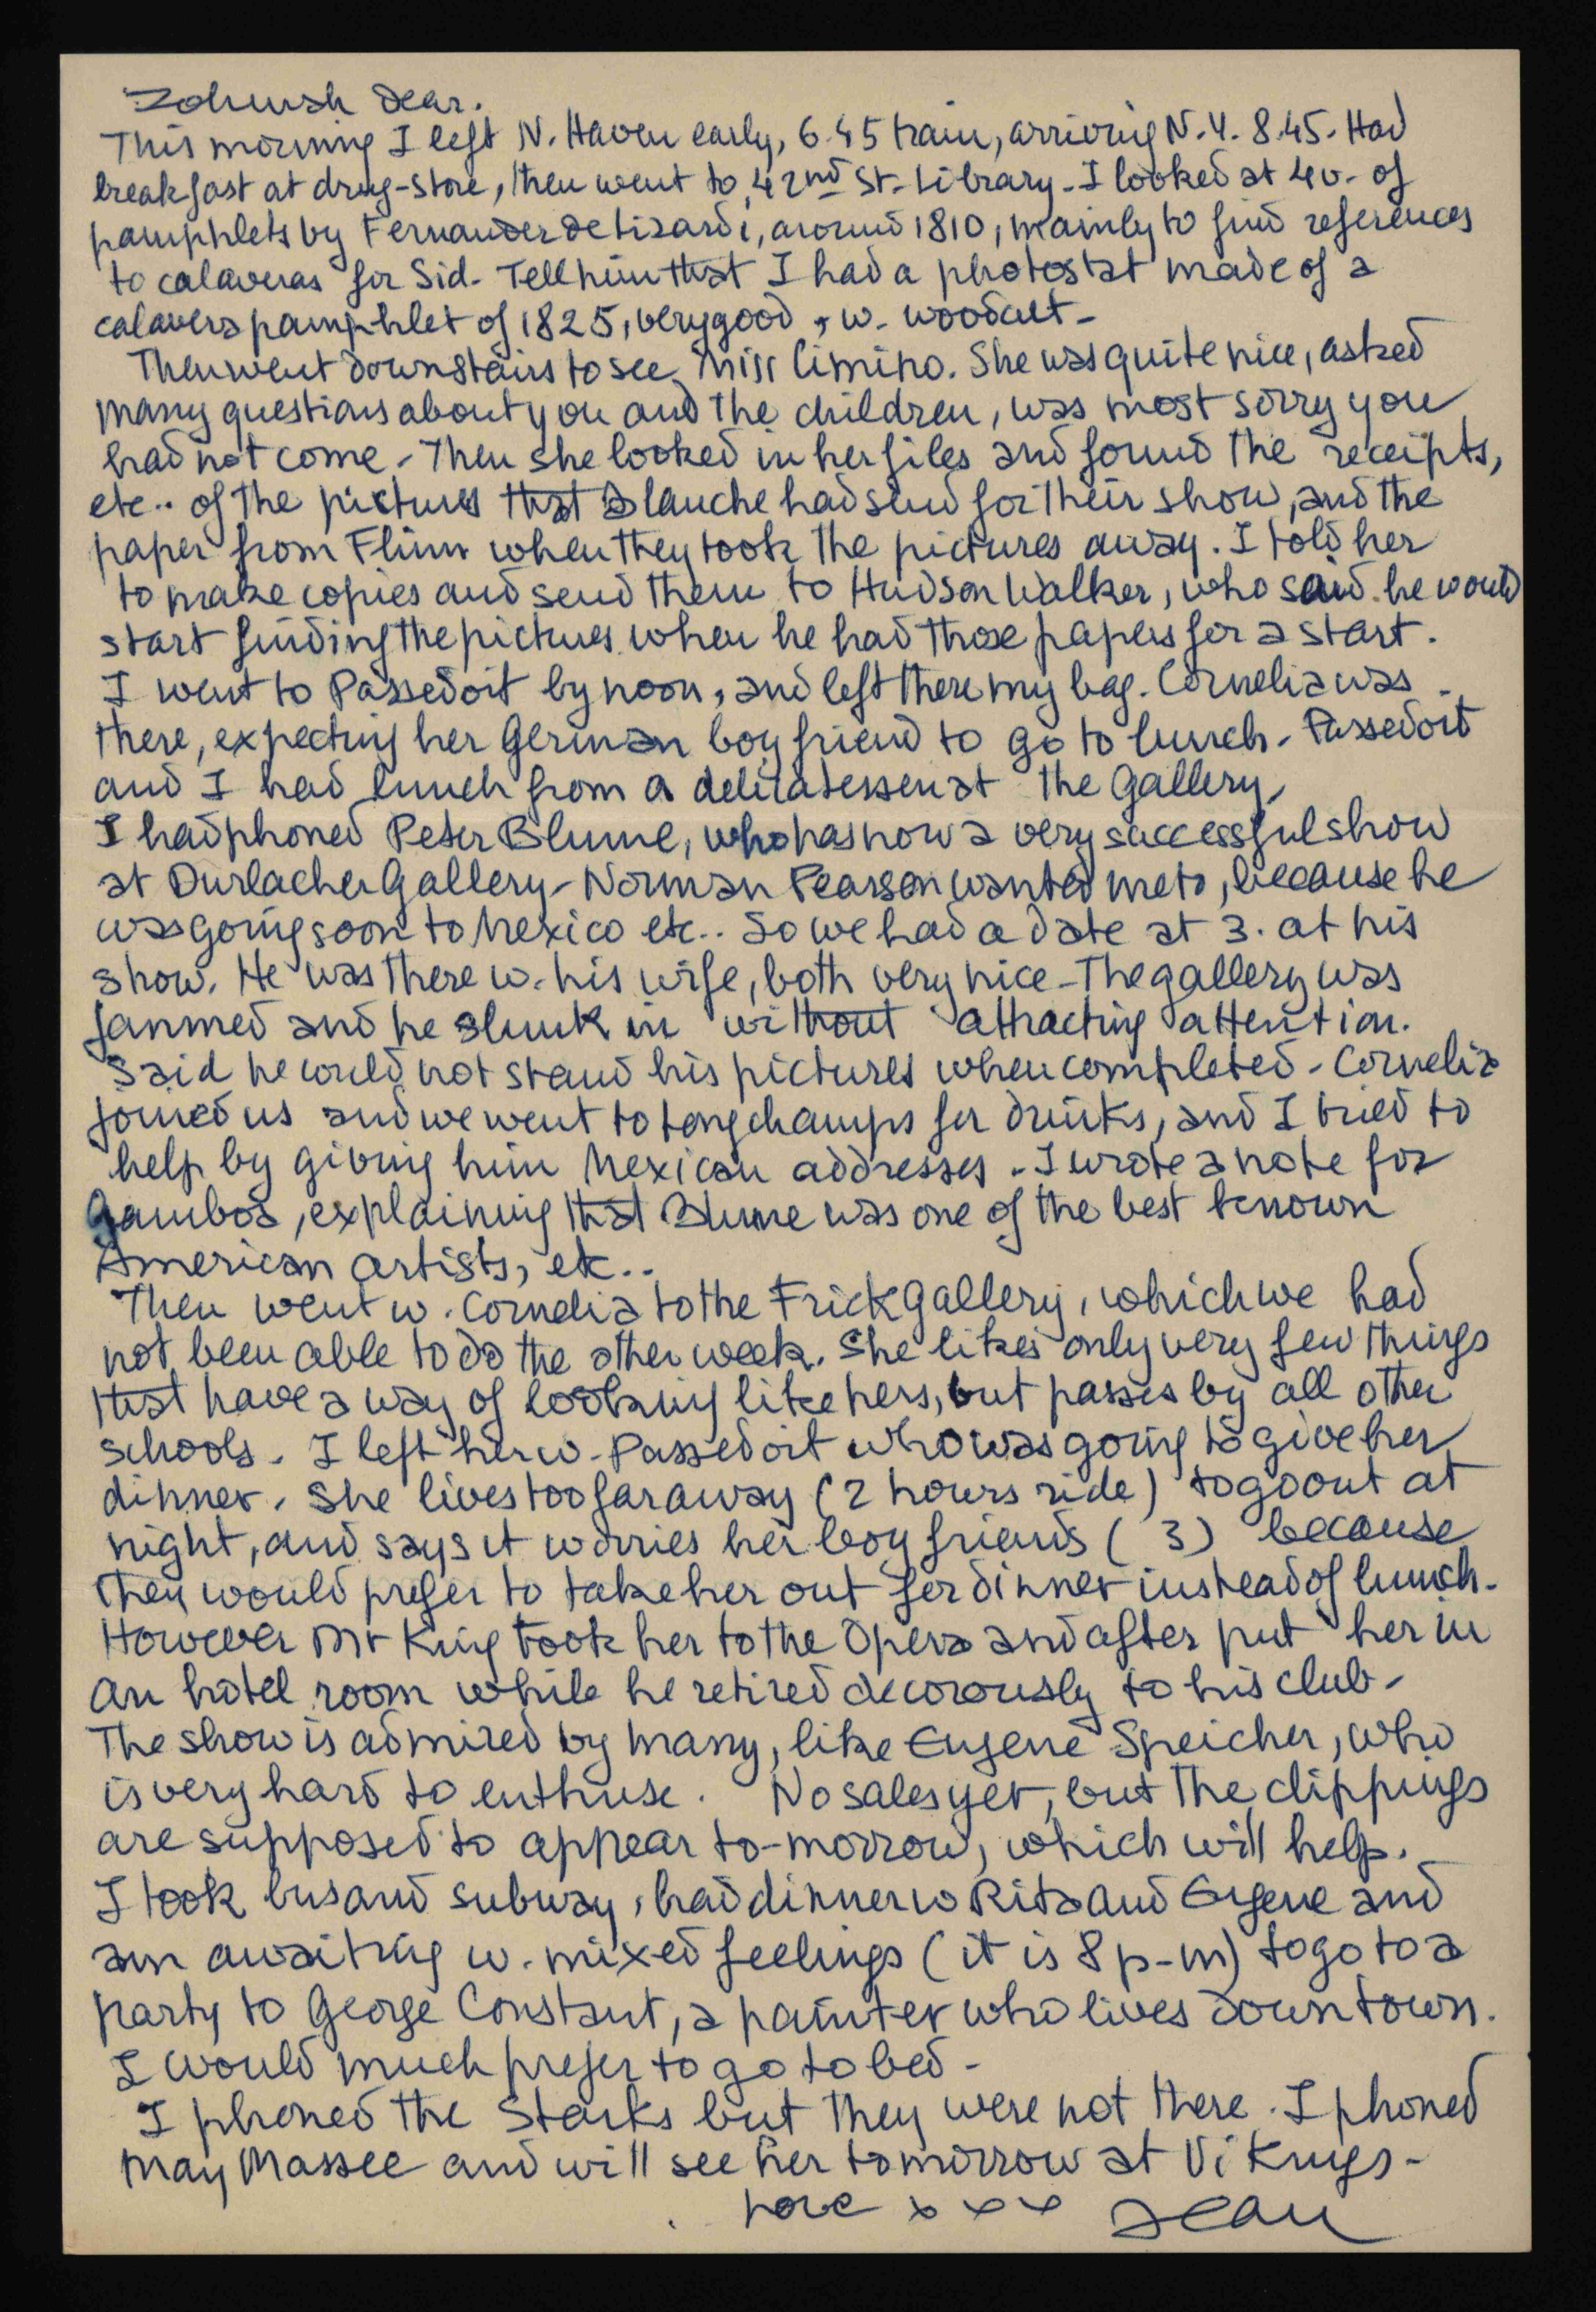 Zohmah dear.
This morning I left N. Haven early, 6.45 train, arriving N.Y. 8.45. Had
breakfast at drug-store, then went to 42nd St. Library. I looked at 40. of
pamphlets by Fernandez de Lizardi, around 1810, mainly to find references
to calaveras for Sid. Tell him that I had a photostat made of a
calavera pamphlet of 1825, very good, w. woodcut.
Then went downstairs to see Miss Cimino. She was quite nice, asked
many questions about you and the children, was most sorry you
had not come. Then she looked in her files and found the receipts,
etc.. of the pictures that Blanche had send for their show, and the
paper from Flinn when they took the pictures away. I told her
to make copies and send them to Hudson Walker, who said he would
start finding the pictures when he had those papers for a start.
I went to Passedoit by noon, and left there my bag. Cornelia was
there, expecting her German boy friend to go to lunch. Passedoit
and I had lunch from a delicatessen at the gallery.
I had phoned Peter Blume, who has now a very successful show
at Durlacher Gallery. Norman Pearson wanted me to, because he
was going soon to Mexico etc.. So we had a date at 3. at his
show. He was there w. his wife, both very nice. The gallery was
jammed and he slunk in without attracting attention.
Said he could not stand his pictures when completed. Cornelia
joined us and we went to Longchamps for drinks, and I tried to
help by giving him Mexican addresses. I wrote a note for
Gamboa, explaining that Blume was one of the best known
American artists, etc..
Then went w. Cornelia to the Frick Gallery, which we had
not been able to do the other week. She likes only very few things
that have a way of looking like hers, but passes by all other
schools. I left her w. Passedoit who was going to give her
dinner. She lives too far away (2 hours ride) to go out at
night, and says it worries her boy friends (3) because
they would prefer to take her out for dinner instead of lunch.
However Mr King took her to the Opera and after put her in
an hotel room while he retired decorously to his club.
The show is admired by many, like Eugene Speicher, who
is very hard to enthuse. No sales yet, but the clippings
are supposed to appear to-morrow, which will help.
I took bus and subway, had dinner w Rita and Eugene and
am awaiting w. mixed feelings (it is 8 p-m) to go to a
party to George Constant, a painter who lives down town.
I would much prefer to go to bed.
I phoned the Starks but they were not there. I phoned
May Massee and will see her tomorrow at Vikings.
Love x x x Jean